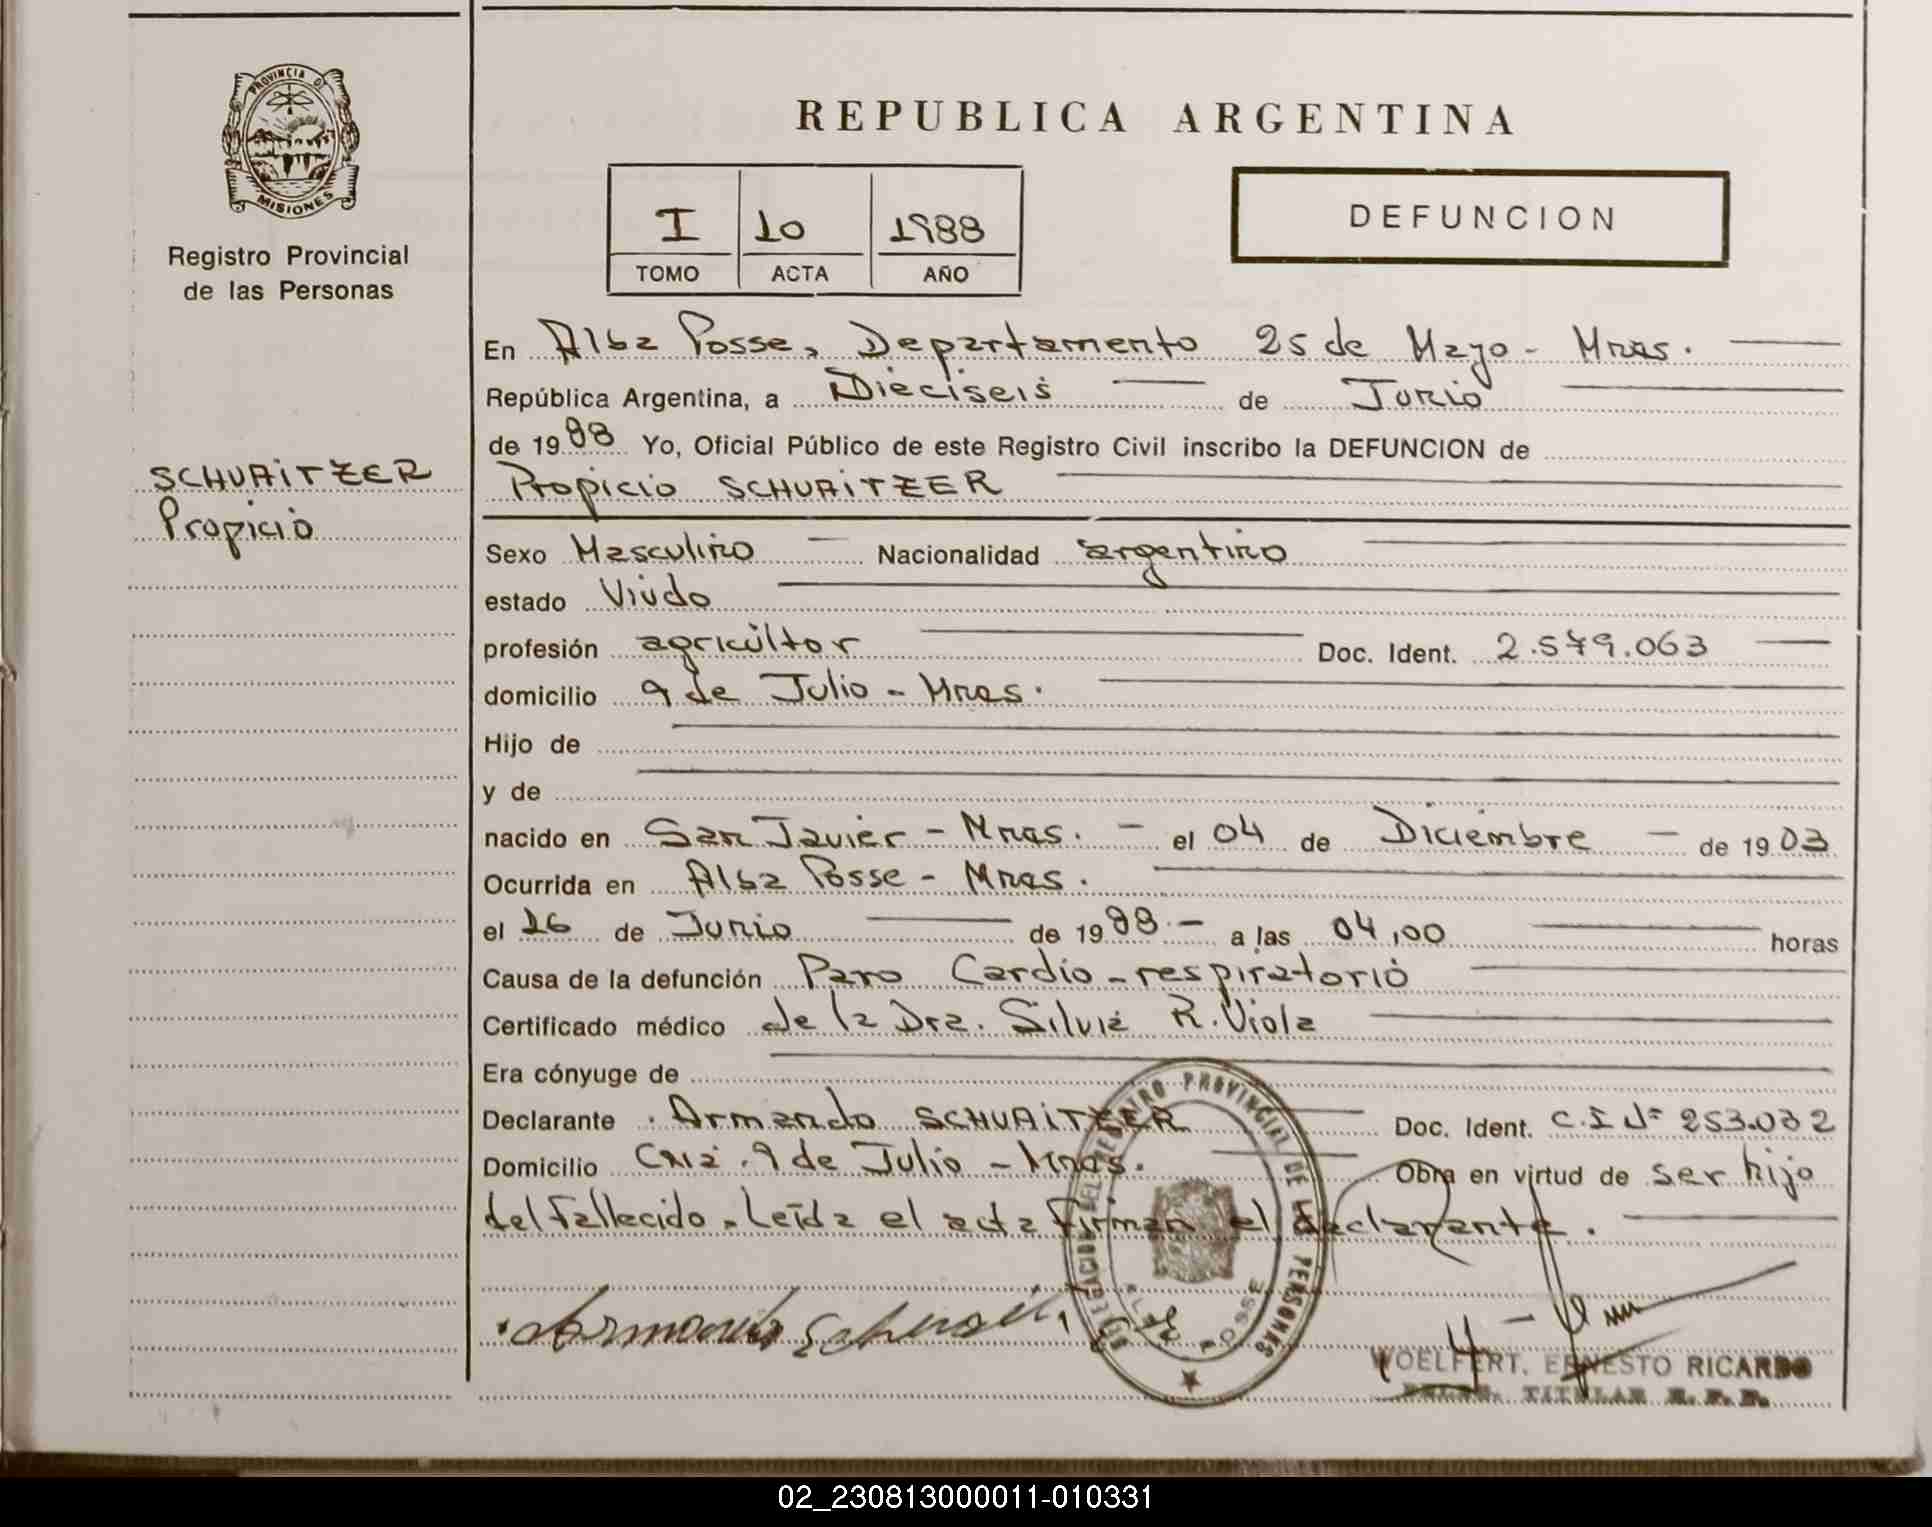 PROVINCIA DE
MISIONES
Registro Provincial
de las Personas
SCHUAITZER
Propicio
REPUBLICA ARGENTINA
I 10 1988
TOMO ACTA AÑO
DEFUNCION
En Alba Posse, Departamento 25 de Mayo - Mnes.
República Argentina, a Dieciseis de Junio
de 1988 Yo, Oficial Público de este Registro Civil inscribo la DEFUNCION de
Propicio SCHUAITZER
Sexo Masculino Nacionalidad argentino
estado Viudo
profesión agricultor Doc. Ident. 2.579.063
domicilio 9 de Julio - Mnes.
Hijo de
y de
nacido en San Javier - Mnes. - el 04 de Diciembre - de 1903
Ocurrida en Alba Posse - Mnes.
el 16 de Junio de 1988 - a las 04,00 horas
Causa de la defunción Paro Cardio-respiratorio
Certificado médico de la Dra. Silvia R. Viola
Era cónyuge de
Declarante Armando SCHUAITZER Doc. Ident. C.I Nº 253.032
Domicilio 9 de Julio - Mnes. Obra en virtud de ser hijo
del fallecido. Leída el acta firman el declarante.
DELEGACION DEL REGISTRO PROVINCIAL DE LAS PERSONAS
ALBA POSSE
Armando
WOELFERT, ERNESTO RICARDO
DELEG. TITULAR R. P. P.
02_230813000011-010331